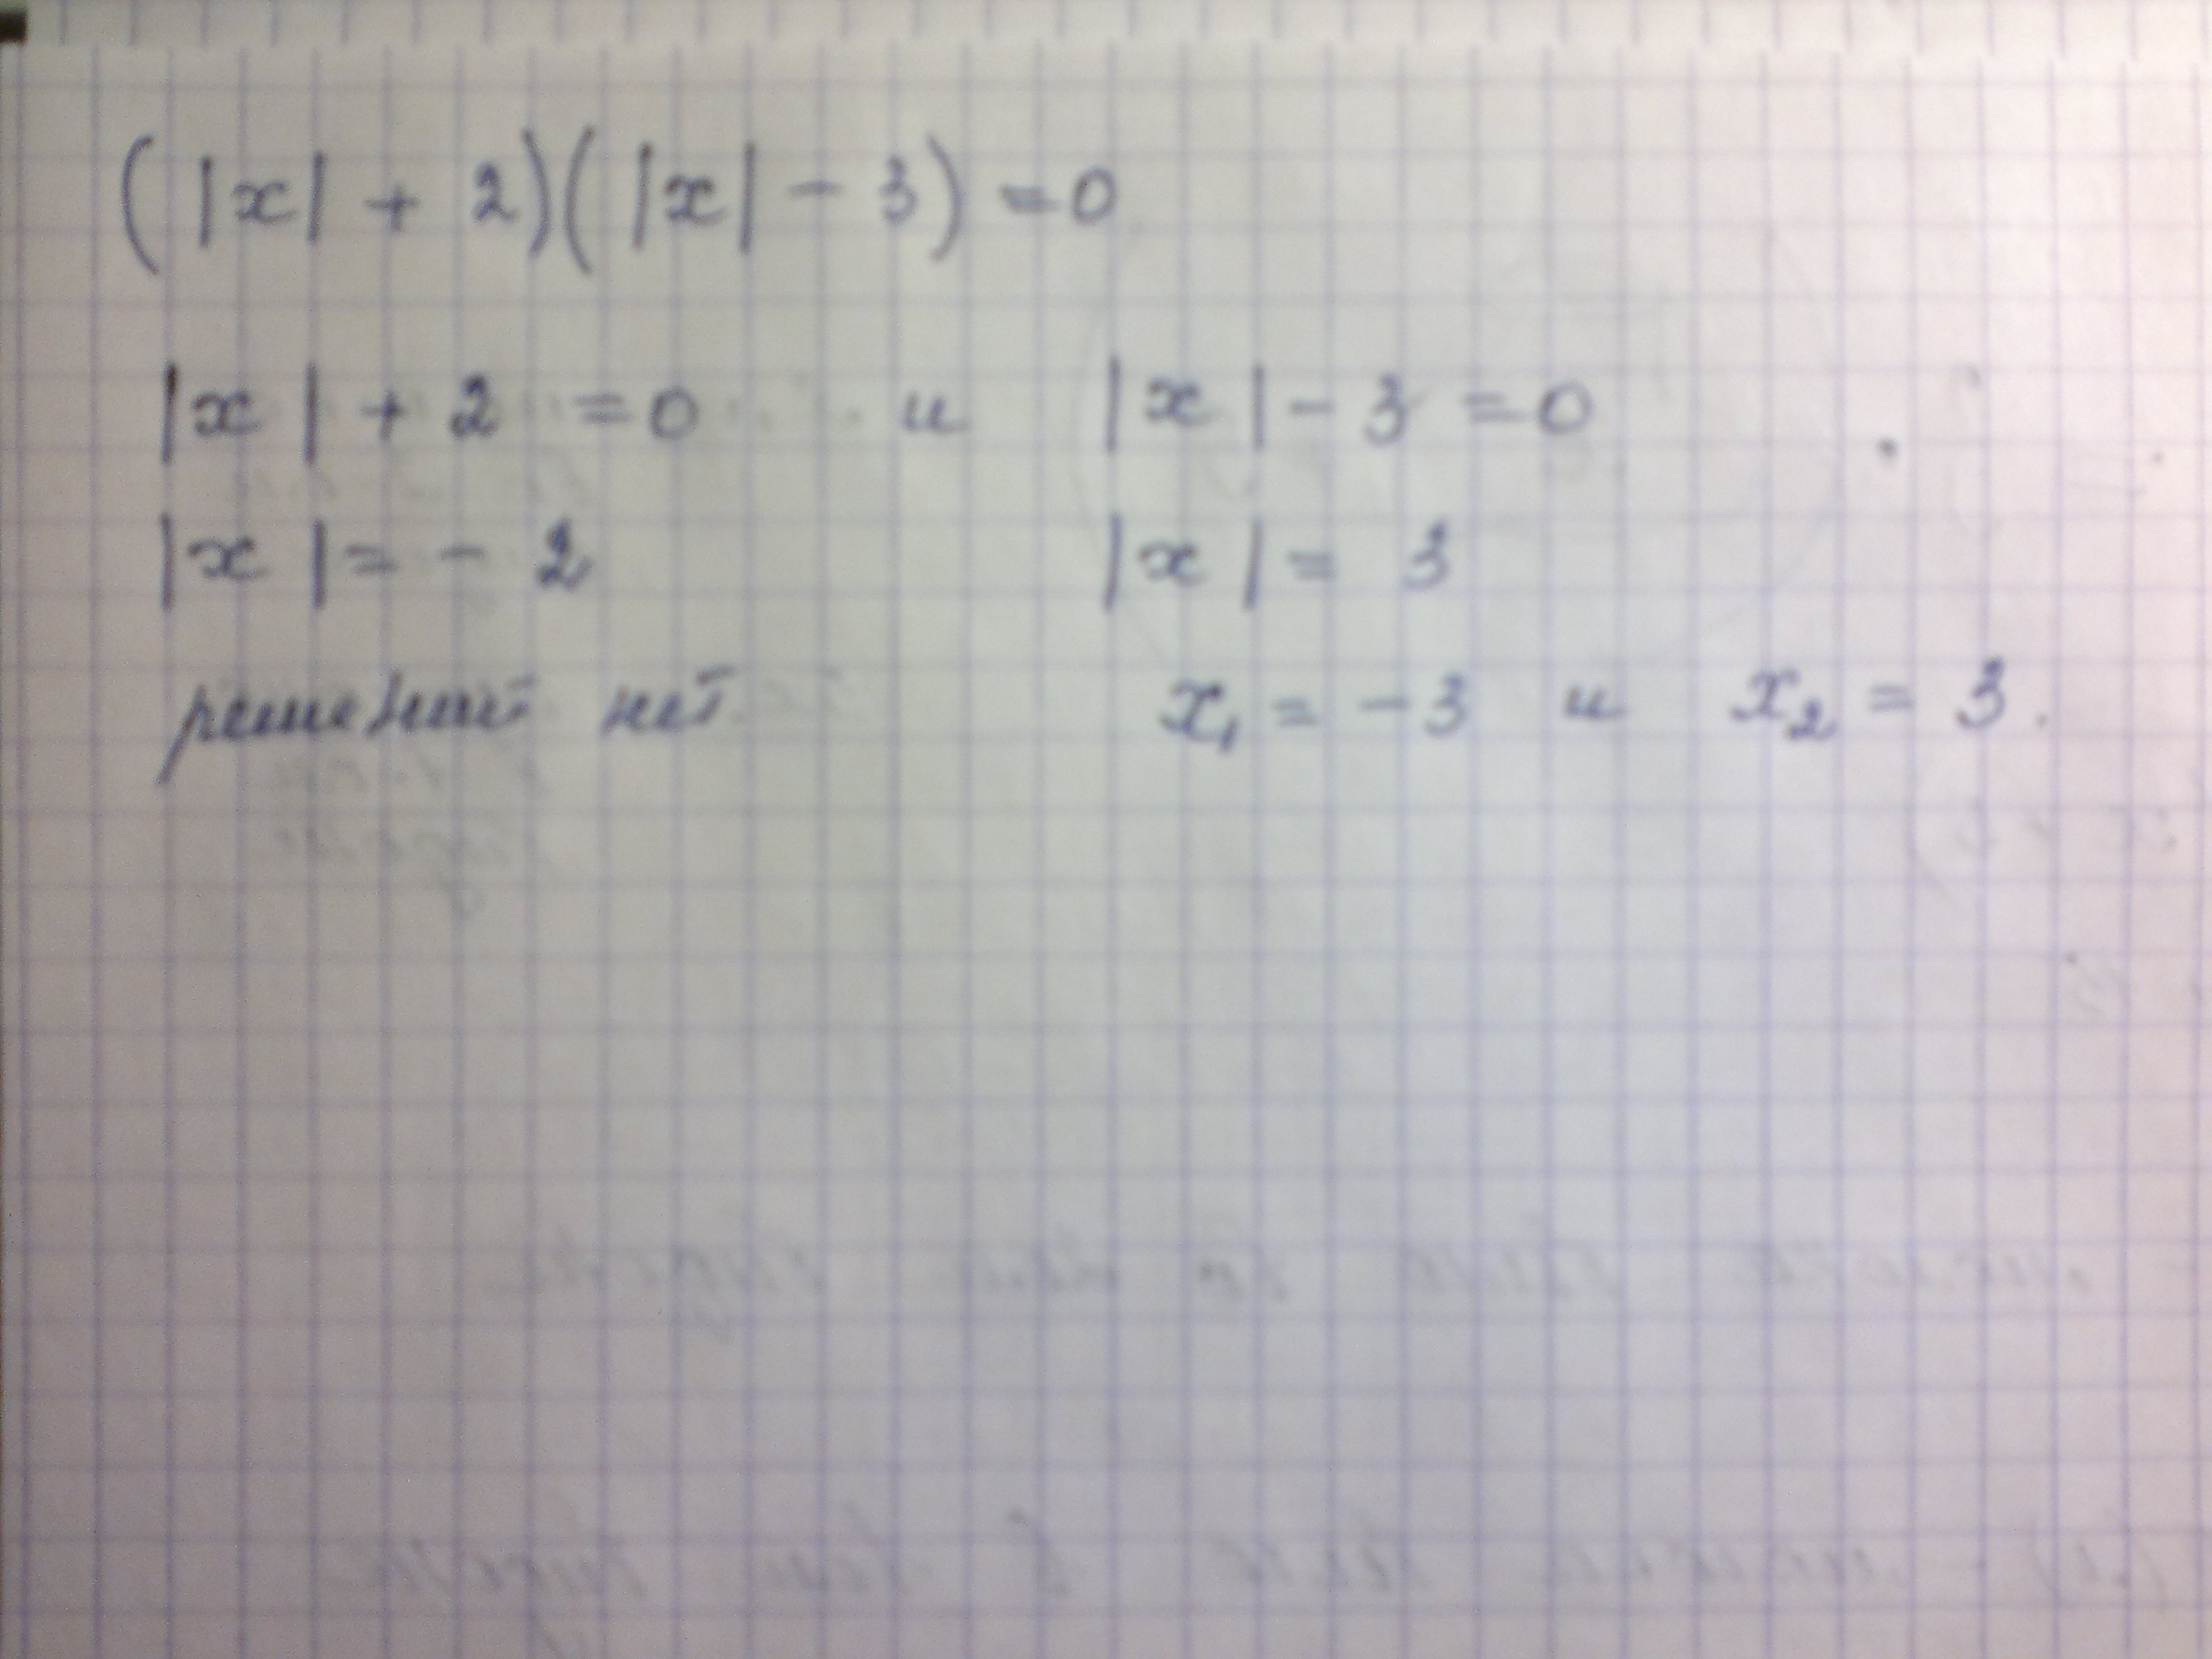 (|x| + 2)(|x| - 3) = 0
|x| + 2 = 0 и |x| - 3 = 0
|x| = - 2 |x| = 3
решений нет x₁ = - 3 и x₂ = 3.